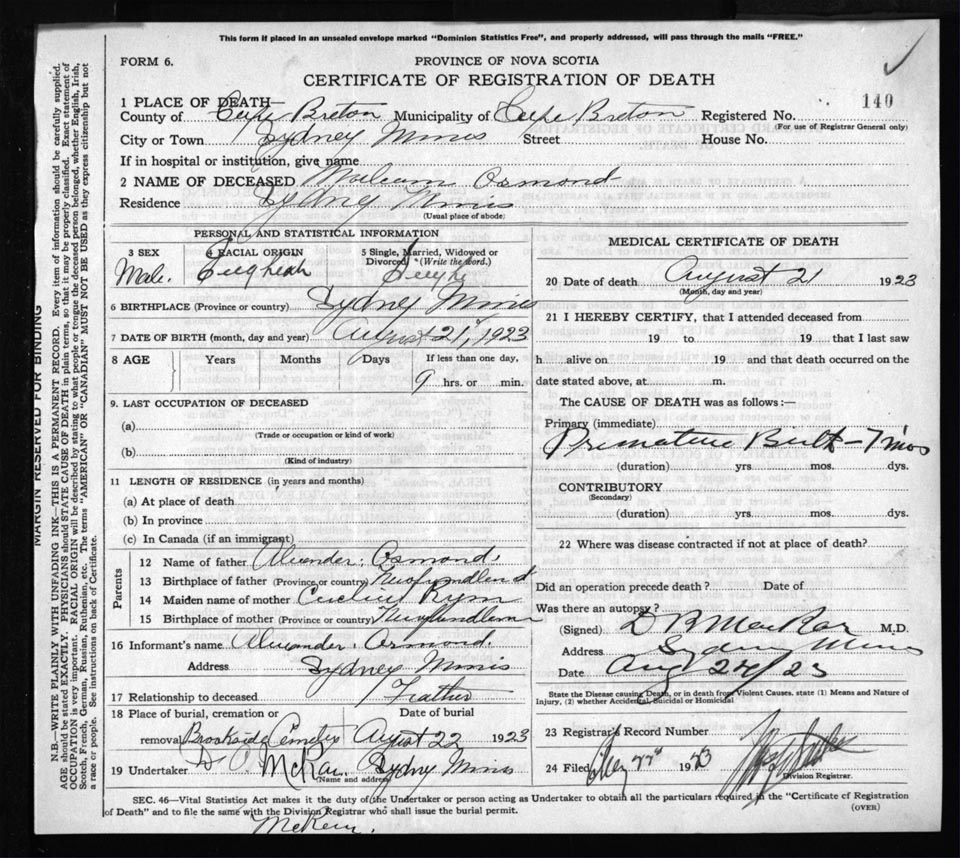 This form if placed in an unsealed envelope marked "Dominion Statistics Free", and properly addressed, will pass through the mails "FREE."
FORM 6.
PROVINCE OF NOVA SCOTIA
CERTIFICATE OF REGISTRATION OF DEATH
140
1 PLACE OF DEATH
County of Cape Breton Municipality of Cape Breton Registered No.
(For use of Registrar General only)
City or Town Sydney Mines Street House No.
If in hospital or institution, give name
2 NAME OF DECEASED William Osmond
Residence Sydney Mines
(Usual place of abode)
PERSONAL AND STATISTICAL INFORMATION
3 SEX 4 RACIAL ORIGIN 5 Single, Married, Widowed or Divorced (Write the word.)
Male. English Single
6 BIRTHPLACE (Province or country) Sydney Mines
7 DATE OF BIRTH (month, day and year) August 21, 1923
8 AGE Years Months Days If less than one day,
9 hrs. or min.
9. LAST OCCUPATION OF DECEASED
(a)
(Trade or occupation or kind of work)
(b)
(Kind of industry)
11 LENGTH OF RESIDENCE (in years and months)
(a) At place of death
(b) In province
(c) In Canada (if an immigrant)
Parents
12 Name of father Alexander Osmond
13 Birthplace of father (Province or country) Newfundlend
14 Maiden name of mother
15 Birthplace of mother (Province or country)
16 Informant's name Alexander Osmond
Address Sydney Mines
17 Relationship to deceased Feather
18 Place of burial, cremation or removal Date of burial
Brookside August 22 1923
19 Undertaker McRae Sydney Mines
(Name and address)
MEDICAL CERTIFICATE OF DEATH
20 Date of death August 21 1923
(Month, day and year)
21 I HEREBY CERTIFY, that I attended deceased from
19 to 19 that I last saw
h alive on 19 and that death occurred on the
date stated above, at m.
The CAUSE OF DEATH was as follows:—
Primary (immediate)
Premature Birth - 7 mos
(duration) yrs. mos. dys.
CONTRIBUTORY
(Secondary)
(duration) yrs. mos. dys.
22 Where was disease contracted if not at place of death?
Did an operation precede death? Date of
Was there an autopsy?
(Signed) M.D.
Address Sydney Mines
Date Aug 24/23
State the Disease causing Death, or in death from Violent Causes, state (1) Means and Nature of Injury, (2) whether Accidental, Suicidal or Homicidal
23 Registrar's Record Number
24 Filed 1923
Division Registrar.
SEC. 46—Vital Statistics Act makes it the duty of the Undertaker or person acting as Undertaker to obtain all the particulars required in the "Certificate of Registration
of Death" and to file the same with the Division Registrar who shall issue the burial permit. (OVER)
MARGIN RESERVED FOR BINDING
N.B.—WRITE PLAINLY WITH UNFADING INK—THIS IS A PERMANENT RECORD. Every item of information should be carefully supplied.
AGE should be stated EXACTLY. PHYSICIANS should STATE CAUSE OF DEATH in plain terms, so that it may be properly classified. Exact statement of
OCCUPATION is very important. RACIAL ORIGIN will be described by stating to what people or tongue the deceased person belonged, whether English, Irish,
Scotch, French, German, Russian, Ruthenian, etc. The terms "AMERICAN" OR "CANADIAN" MUST NOT BE USED as they express citizenship but not
a race or people. See instructions on back of Certificate.